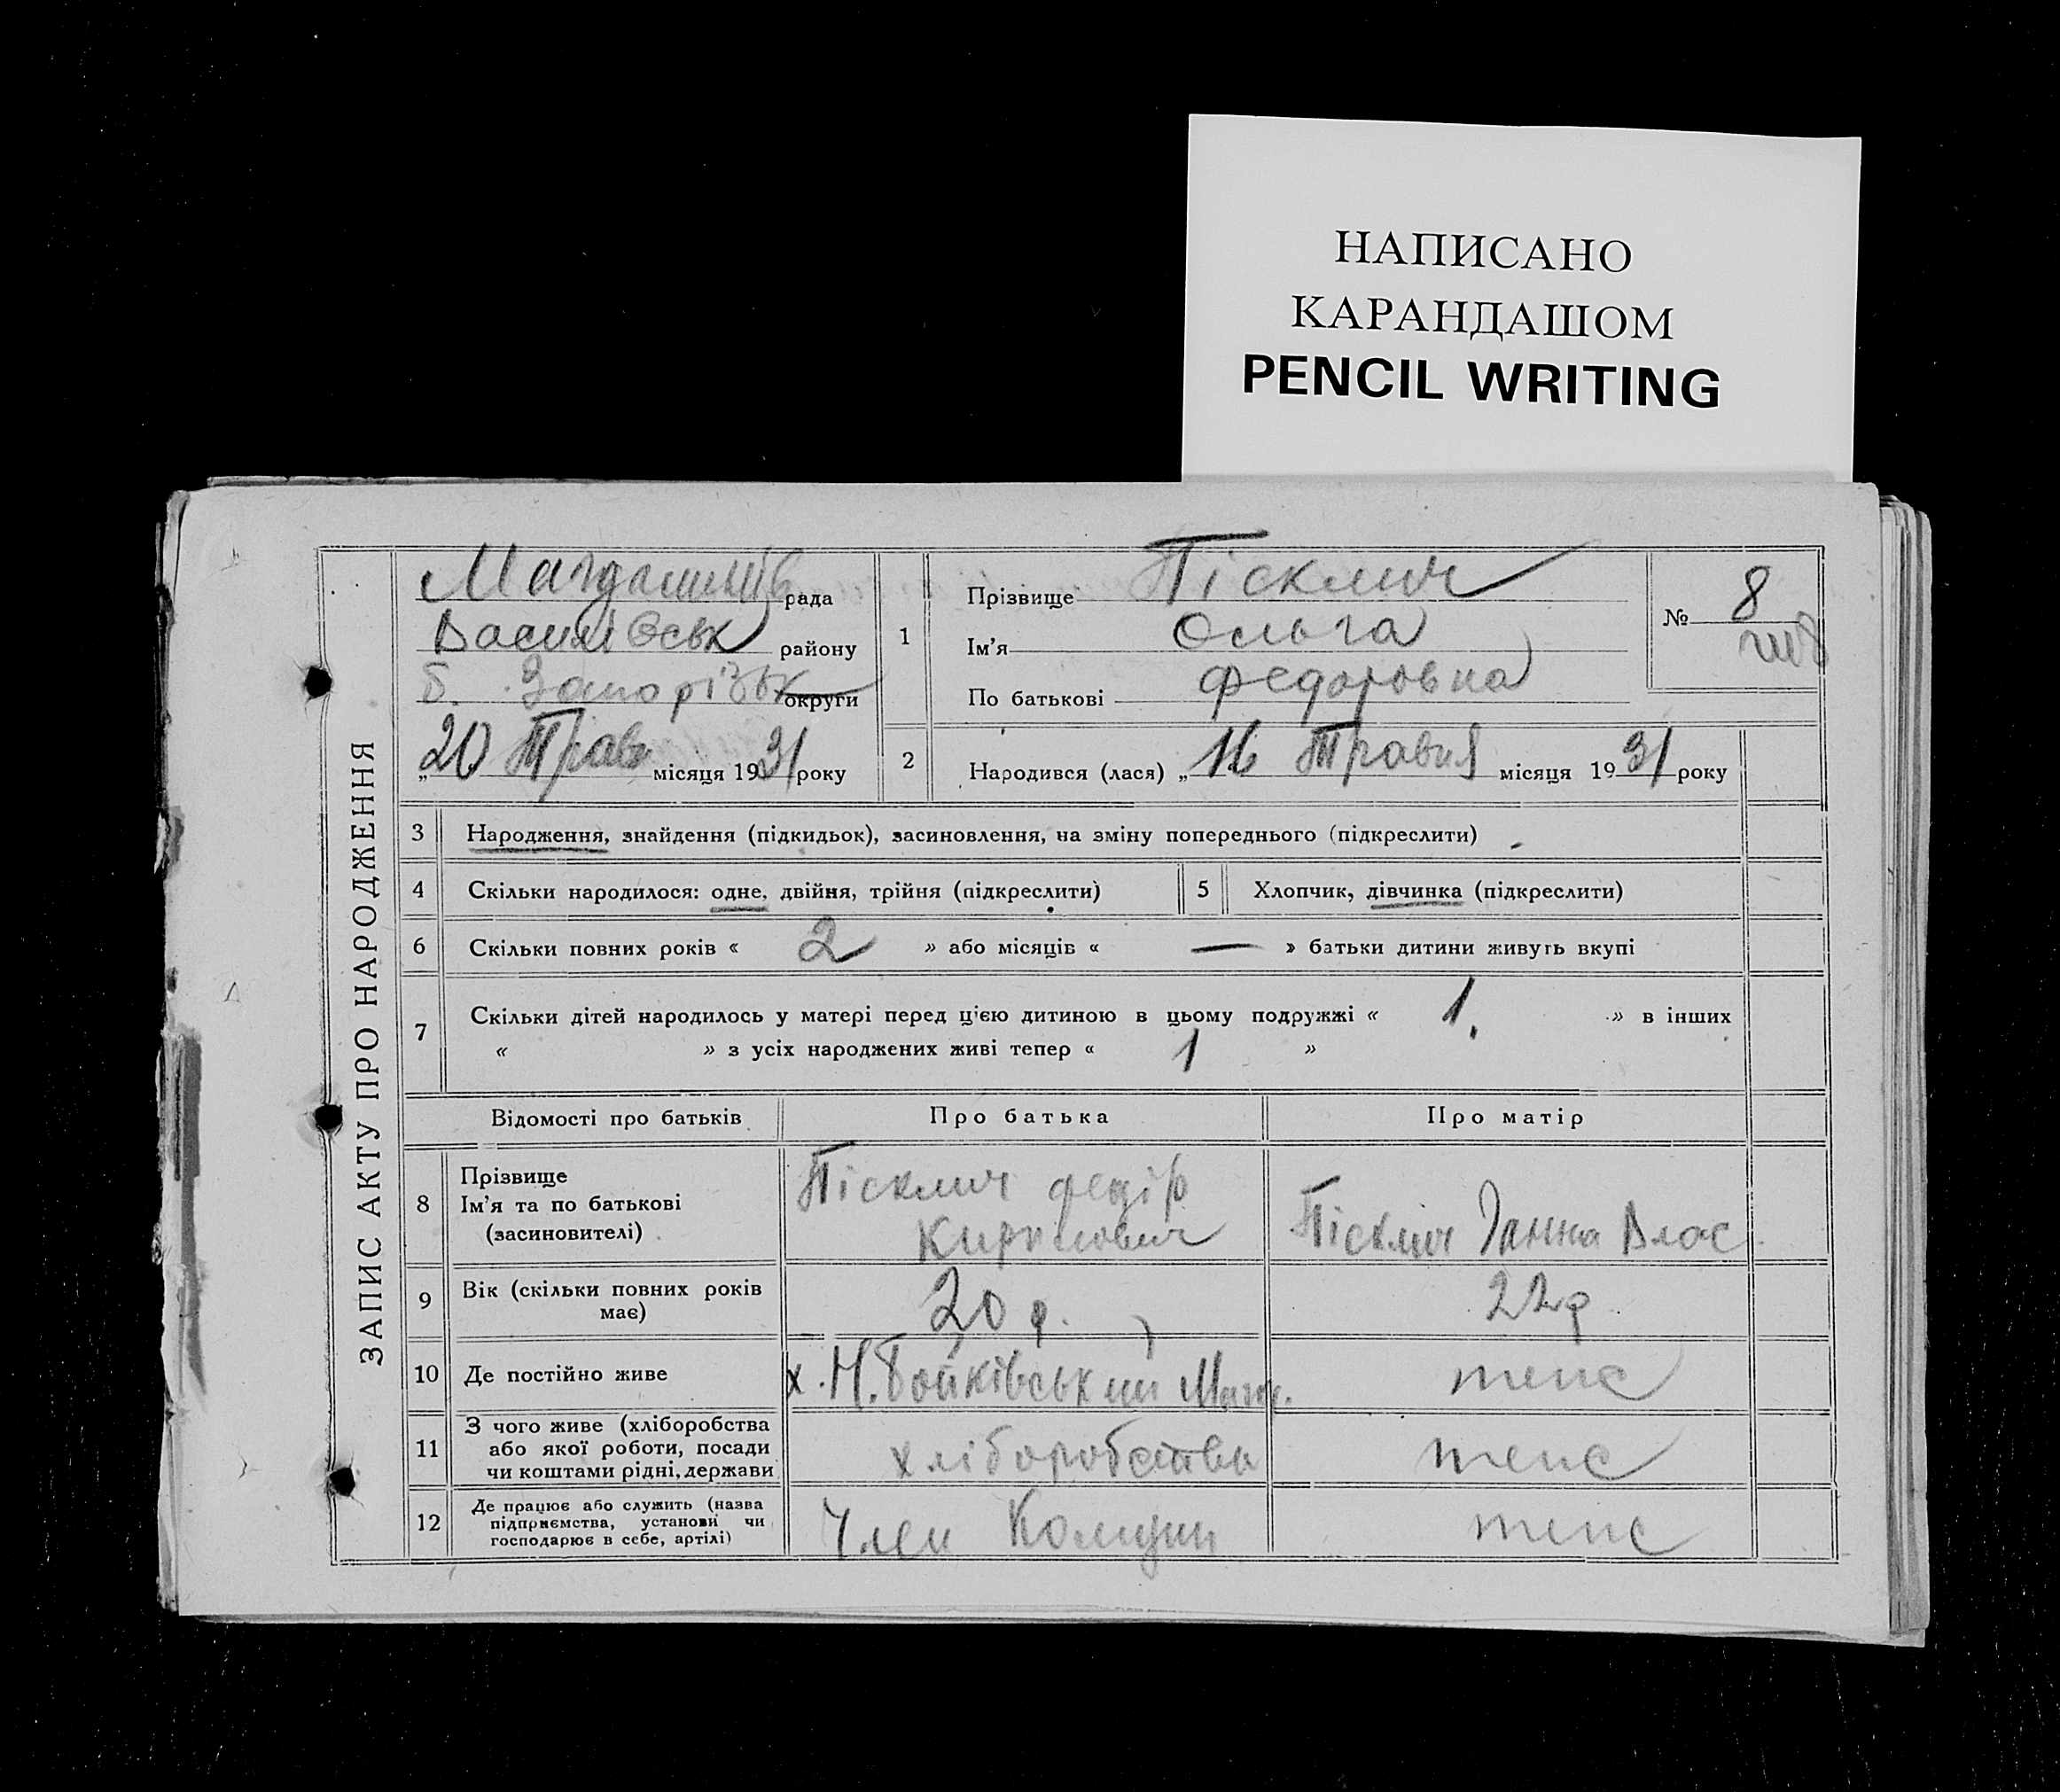 НАПИСАНО
КАРАНДАШОМ
PENCIL WRITING
ЗАПИС АКТУ ПРО НАРОДЖЕННЯ
рада
району
б. Запорізьк округи
„20 Трав місяця 1931 року
1
Прізвище
Ім'я Ольга
По батькові Федоровна
№ 8
2 Народився (лася) „16 Травня місяця 1931 року
3 Народження, знайдення (підкидьок), засиновлення, на зміну попереднього (підкреслити)
4 Скільки народилося: одне, двійня, трійня (підкреслити)
5 Хлопчик, дівчинка (підкреслити)
6 Скільки повних років « 2 » або місяців « — » батьки дитини живуть вкупі
7 Скільки дітей народилось у матері перед цією дитиною в цьому подружжі « 1. » в інших
« » з усіх народжених живі тепер « 1 »
Відомості про батьків Про батька Про матір
8 Прізвище
Ім'я та по батькові
(засиновителі)
Федір
Ганна Влас.
9 Вік (скільки повних років
має)
20 р. 22 р.
10 Де постійно живе
х. Н. Бойківський тепс
11 З чого живе (хліборобства
або якої роботи, посади
чи коштами рідні, держави
хліборобства тепс
12 Де працює або служить (назва
підприємства, установи чи
господарює в себе, артілі)
Член Комуни тепс